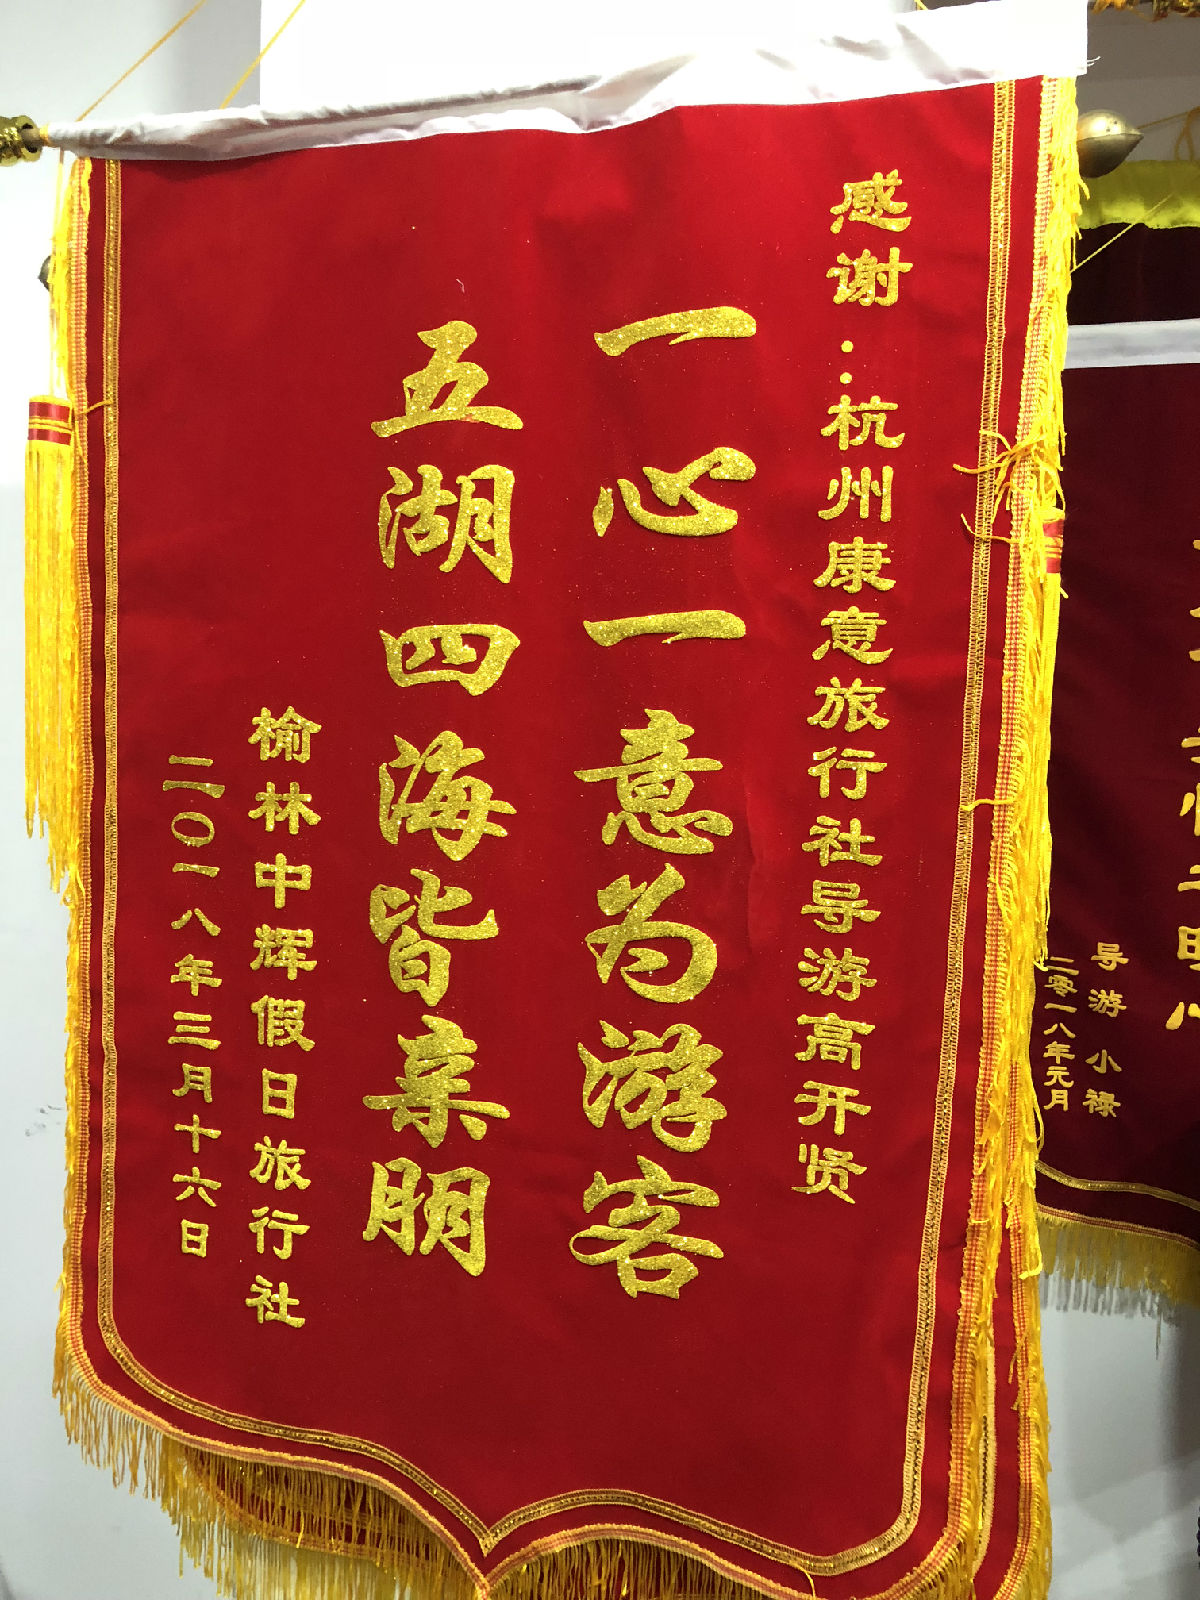 感谢：杭州康意旅行社导游高开贤
一心一意为游客
五湖四海皆亲朋
榆林中辉假日旅行社
二〇一八年三月十六日
导游 小禄
二零一八年元月